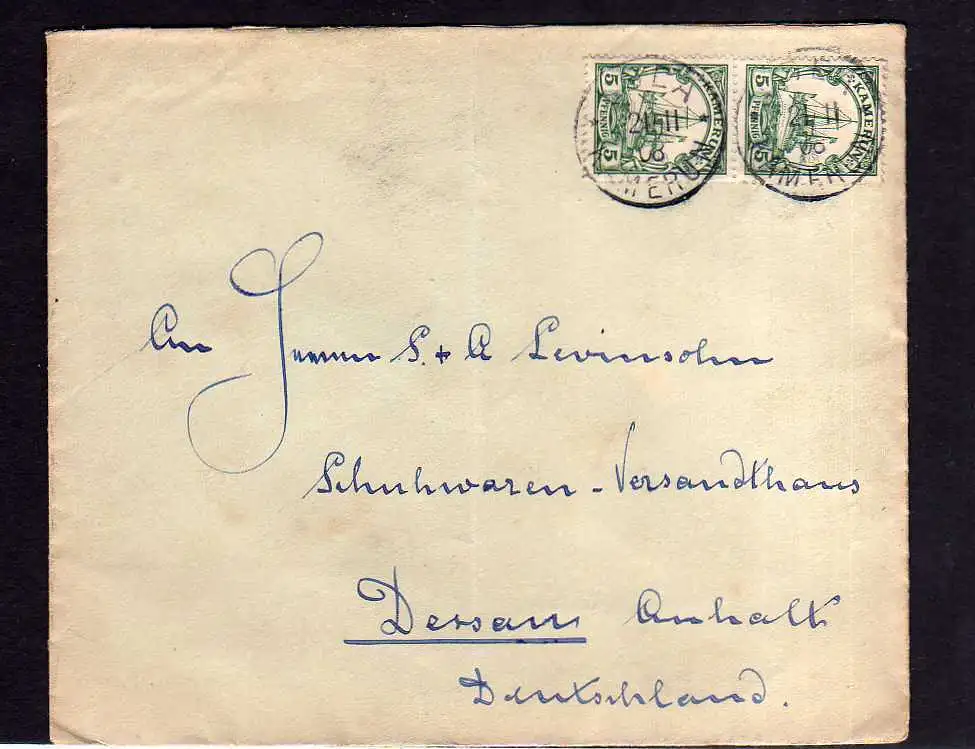 KAMERUN
5 PFENNIG 5
KAMERUN
5 PFENNIG 5
EA
21/11
08
KAMERUN
08
An Herren S. + A Levinsohn
Schuhwaren - Versandthaus
Dessau Anhalt
Deutschland.